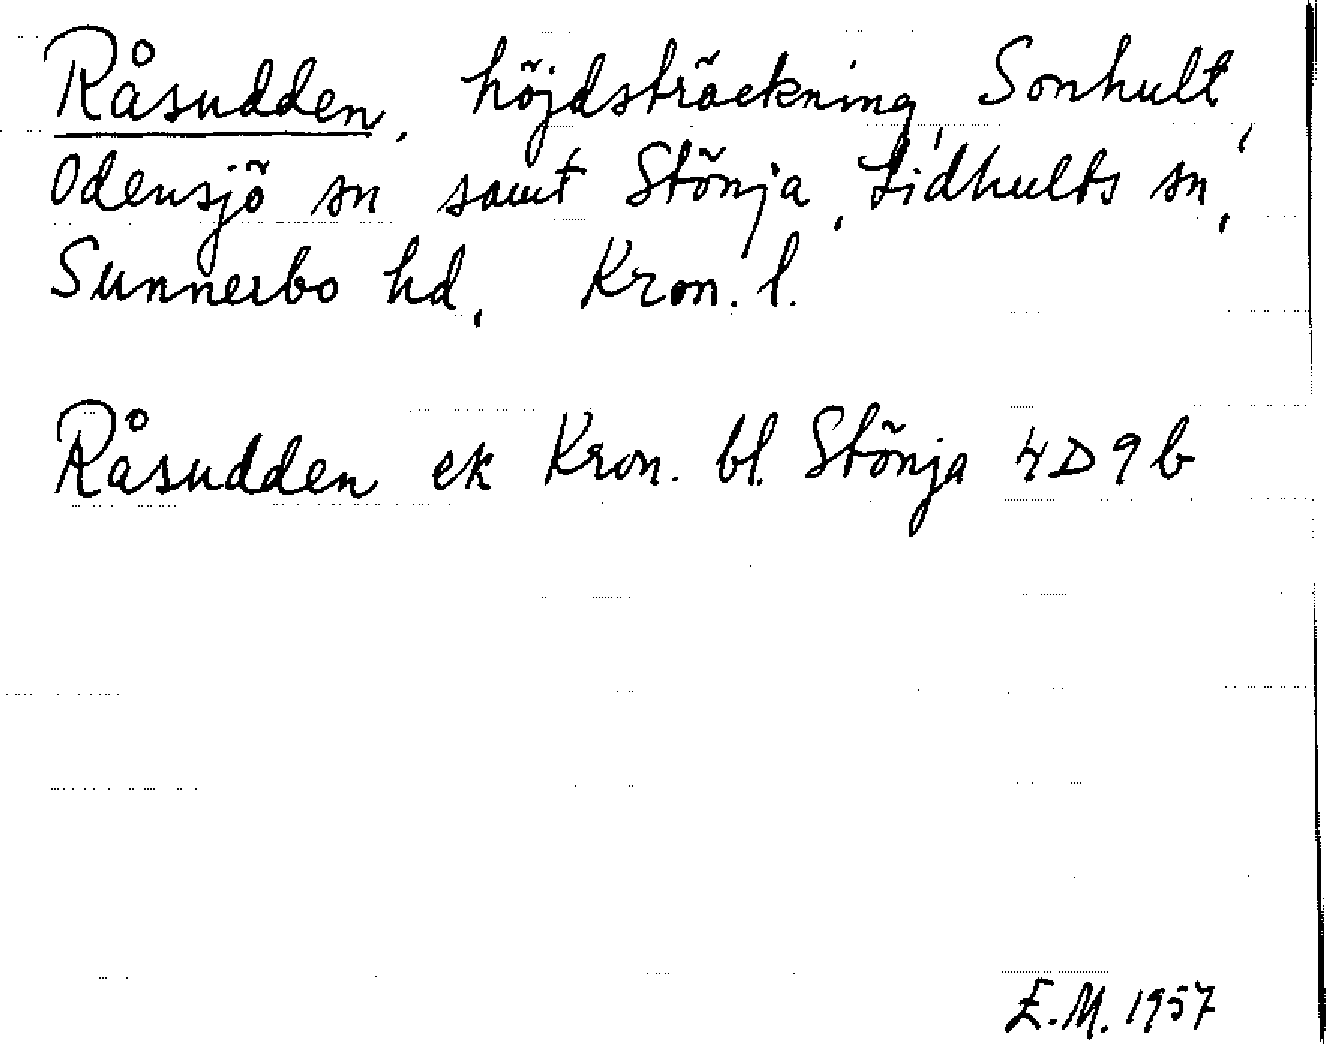 Råsudden, höjdsträckning, Sonhult,
Odensjö sn samt Stönja, Lidhults sn,
Sunnerbo hd, Kron. l.
Råsudden ek Kron. bl. Stönja 4D9b
E.M. 1957